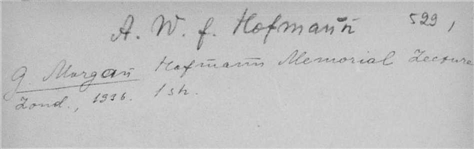 A. W. f. Hofmann 529,
G. Morgan Hofmann Memorial Lecture
Lond., 1936. 1 sh.